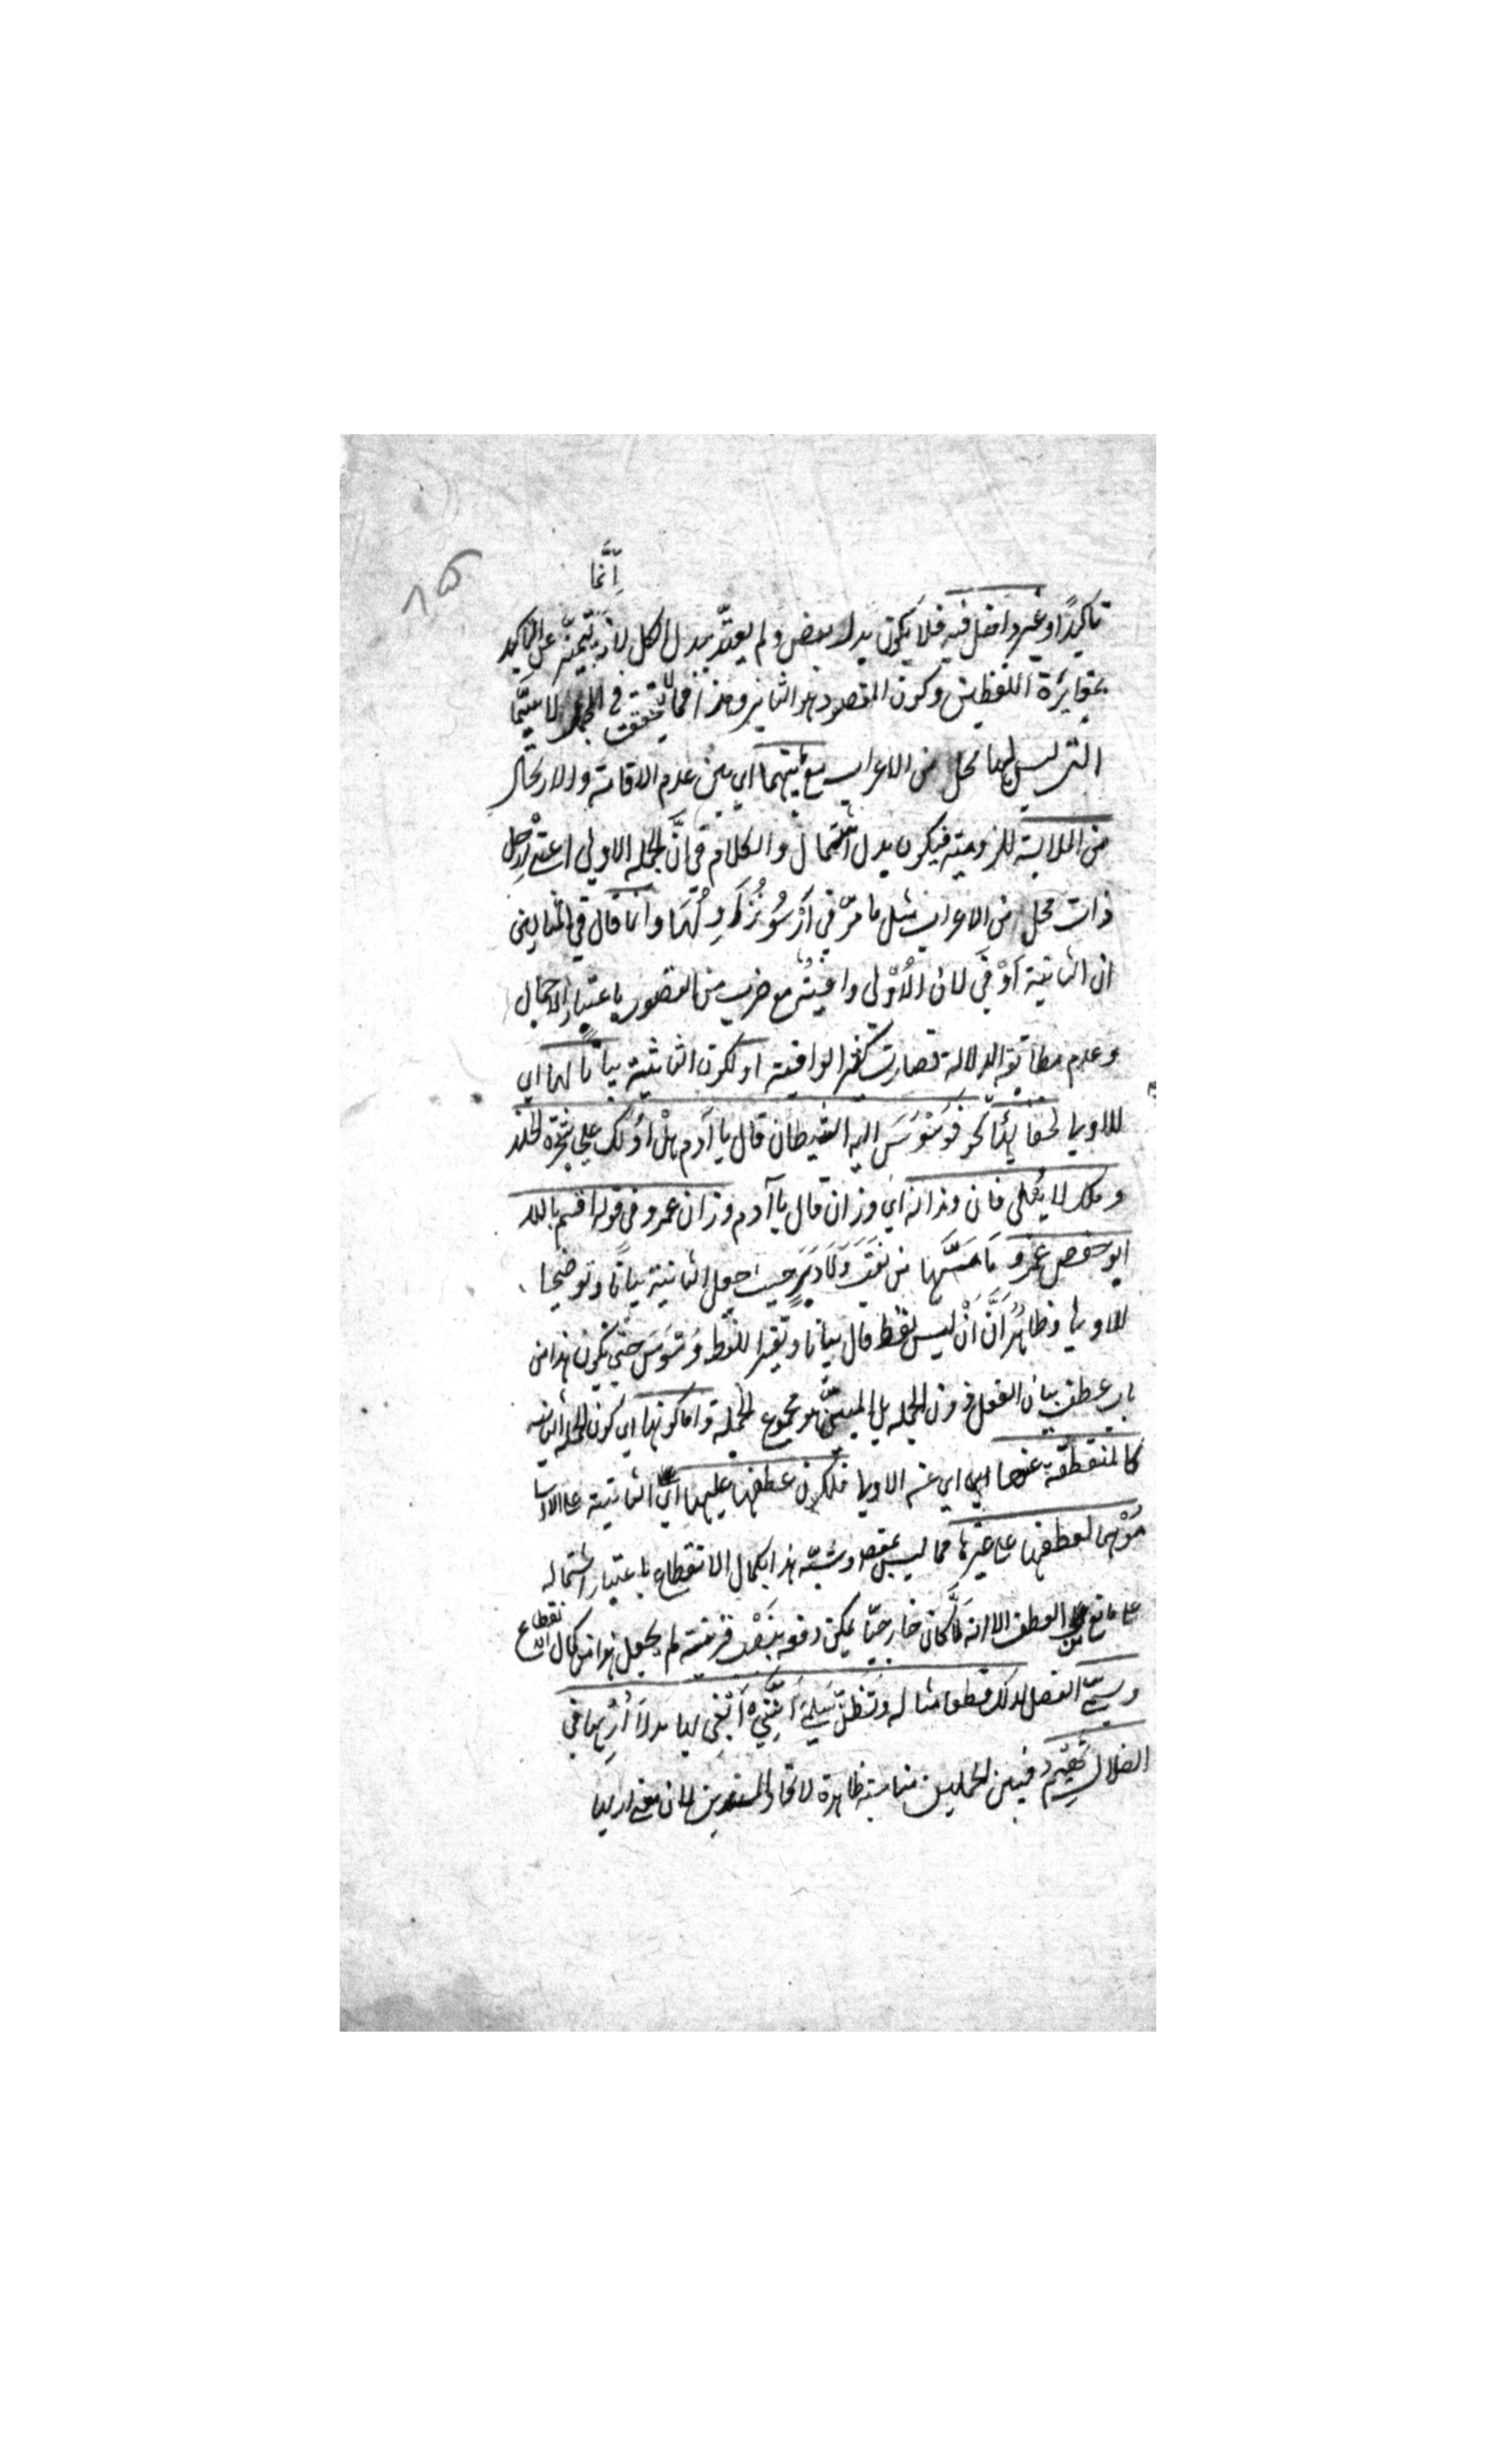 ٨٥
إنَّما
تأكيدًا وغير داخل فيه فلا يكون بدل بعض ولم يعتدّ ببدل الكل لأنه يتميّز عن التأكيد
بمغايرة اللفظين وكون المقصود هو الثاني وهذا مما لا يتحقق في الجمل لا سيّما
التي ليس لها محل من الاعراب مع ما بينهما اي بين عدم الاقامة والارتحال
من الملابسة اللزومية فيكون بدل اشتمال والكلام في انَّ الجملة الاولى اعني ارحل
ذات محل من الاعراب مثل ما مرّ في أرْسُوا نُزَاوِلُهَا وانما قال في المثالين
ان الثانية أوْفَى لان الأوْلى وافيةٌ مع ضرب من القصور باعتبار الاجمال
وعدم مطابقة الدلالة فصارت كغير الوافية او لكون الثانية بيانًا لها اي
للاولى لخفائها نحو فَوَسْوَسَ اليه الشيطان قال يا آدم هَلْ أدُلُّكَ على شجرة الخلد
وملك لا يَبْلَى فان وزانه اي وزان قال يا آدم وزان عمر وفي قوله اقسم بالله
ابو حفص عمر مَا مَسَّهَا من نقَبٍ ولَا دَبَرٍ حيث جعل الثانية بيانًا وتوضيحا
للاولى وظاهر أنَّ أنْ ليس لفظ قال بيانا وتفسيرا للفظ وَسْوَسَ حتى يكون هذا من
باب عطف بيان الفعل دون الجملة بل المبيَّن هو مجموع الجملة واما كونها اي كون الجملة الثانية
كالمنقطعة عنها اي عن الاولى فلكون عطفها عليها اي الثانية على الاولى
مُوْهِما لعطفها على غيرها مما ليس بمقصود وشبّه هذا بكمال الانقطاع باعتبار اشتماله
على مانع من العطف الا انه لَمَّا كان خارجيًّا يمكن دفعه بنَصْب قرينة لم يجعل هذا من كمال الانقطاع
ويسمّى الفصل لذلك قطعا مثاله وتَظُنُّ سَلْمى أنَّنِي أبْغي بها بدلًا أُرَاها في
الضلال تَهيمُ فبين الجملتين مناسبة ظاهرة لاتحاد المسندين لان معنى اراها